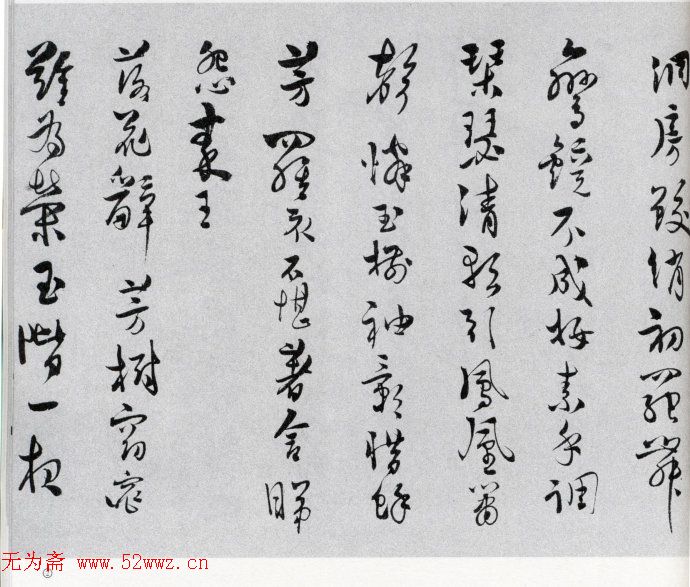 洞房鮫綃初罷舞
鸞鏡不成妝素手調
琴瑟清歌引鳳凰簫
聲憐玉樹袖影惜餘
芳羅衣不堪著含睇
怨秦王
落花辭芳樹窈窕
難為榮玉階一相
无为斋 www.52wwz.cn